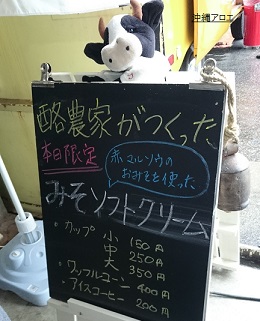 沖縄アロエ
酪農家がつくった
本日限定
赤マルソウの
おみそを使った
みそソフトクリーム
・カップ 小 150円
中 250円
大 350円
・ワッフルコーン 400円
・アイスコーヒー 200円